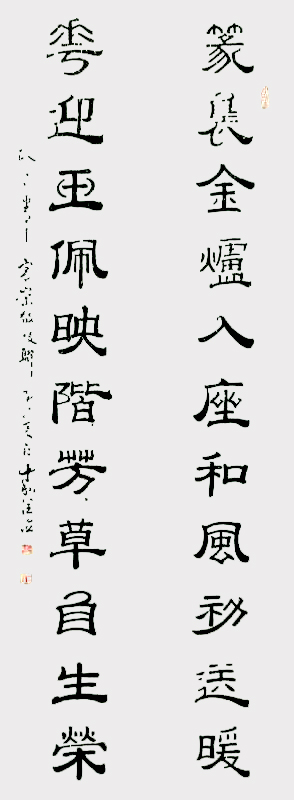 篆裊金爐入座和風初送暖
華迎玉佩映階芳草自生榮